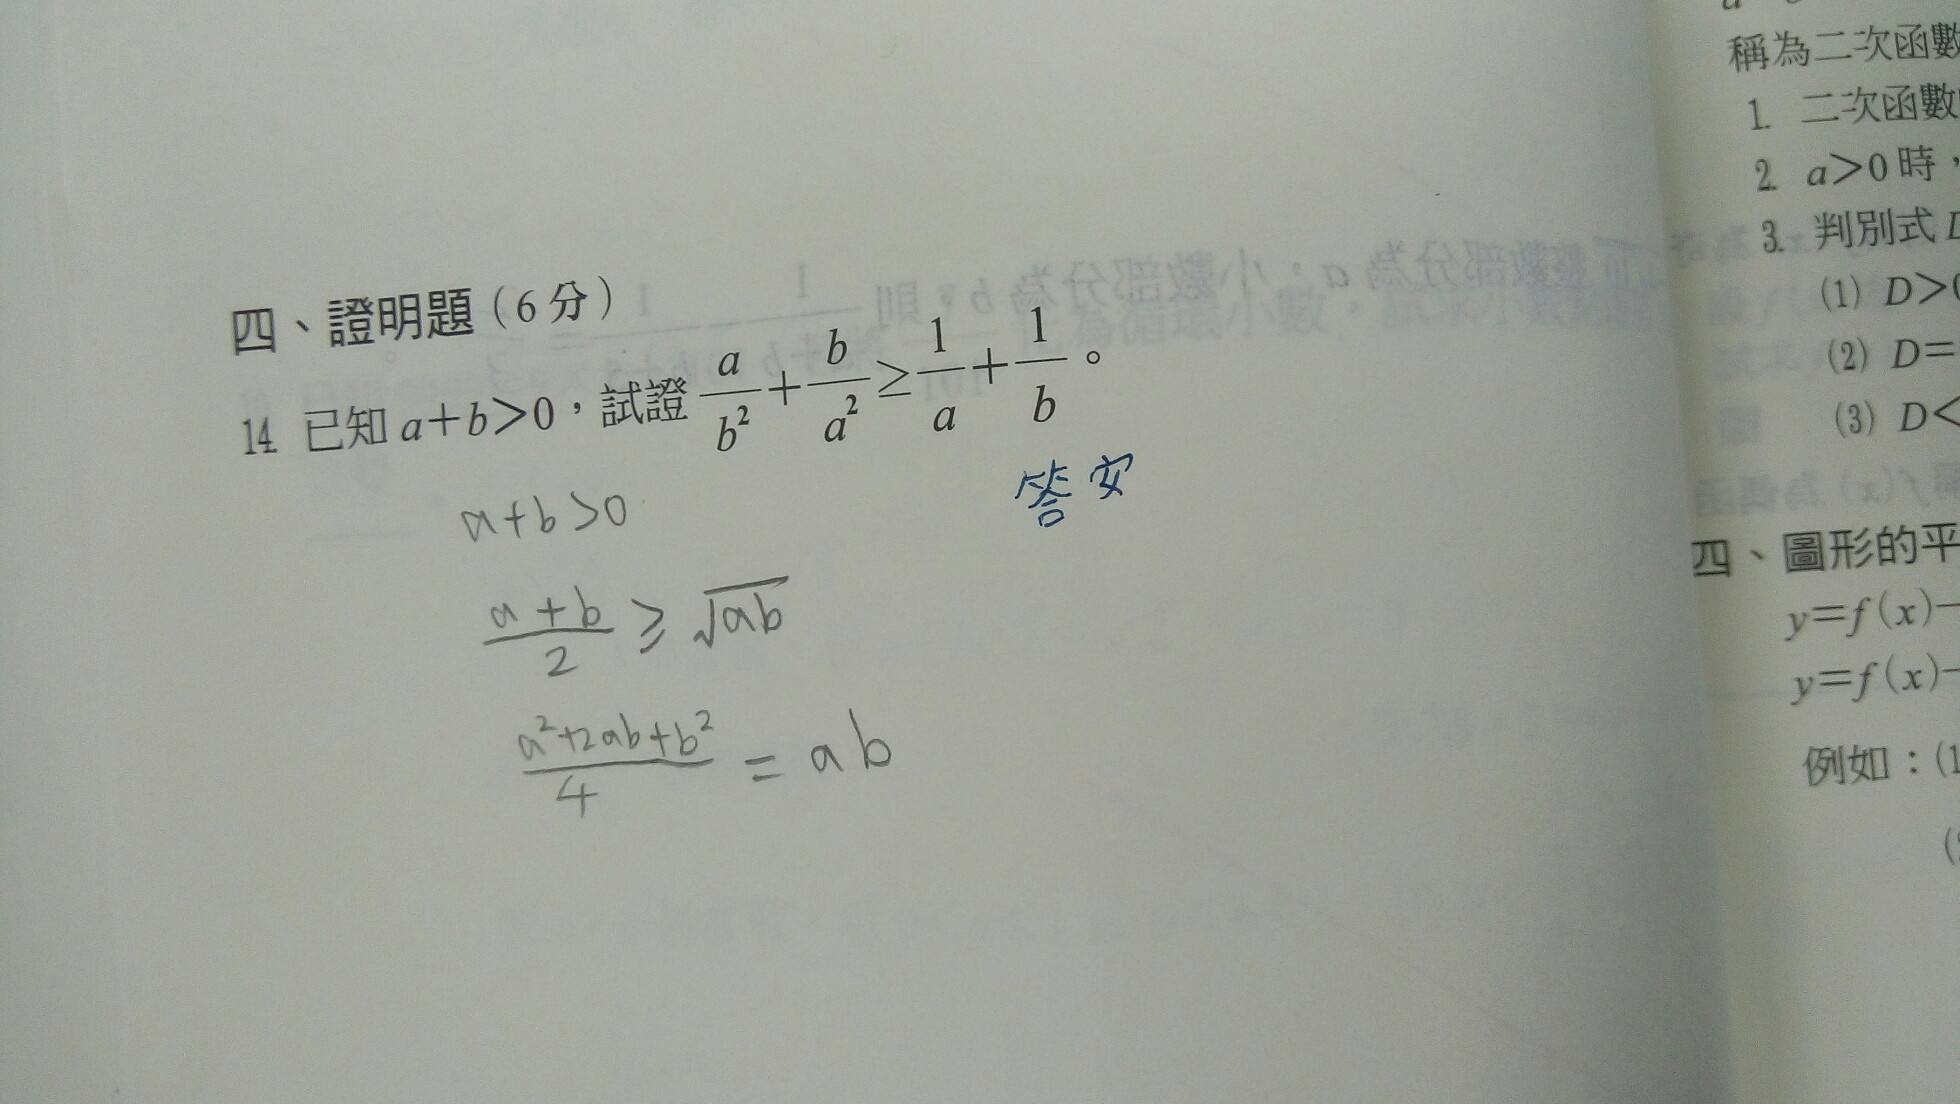 四、證明題（6分）
14. 已知 a+b>0，試證 a/b² + b/a² ≥ 1/a + 1/b。
答安
a+b>0
(a+b)/2 ≥ √ab
(a²+2ab+b²)/4 = ab
稱為二次函數
1. 二次函數
2. a>0時，
3. 判別式 D
(1) D>0
(2) D=
(3) D<
四、圖形的平
y=f(x)−
y=f(x)−
例如：(1